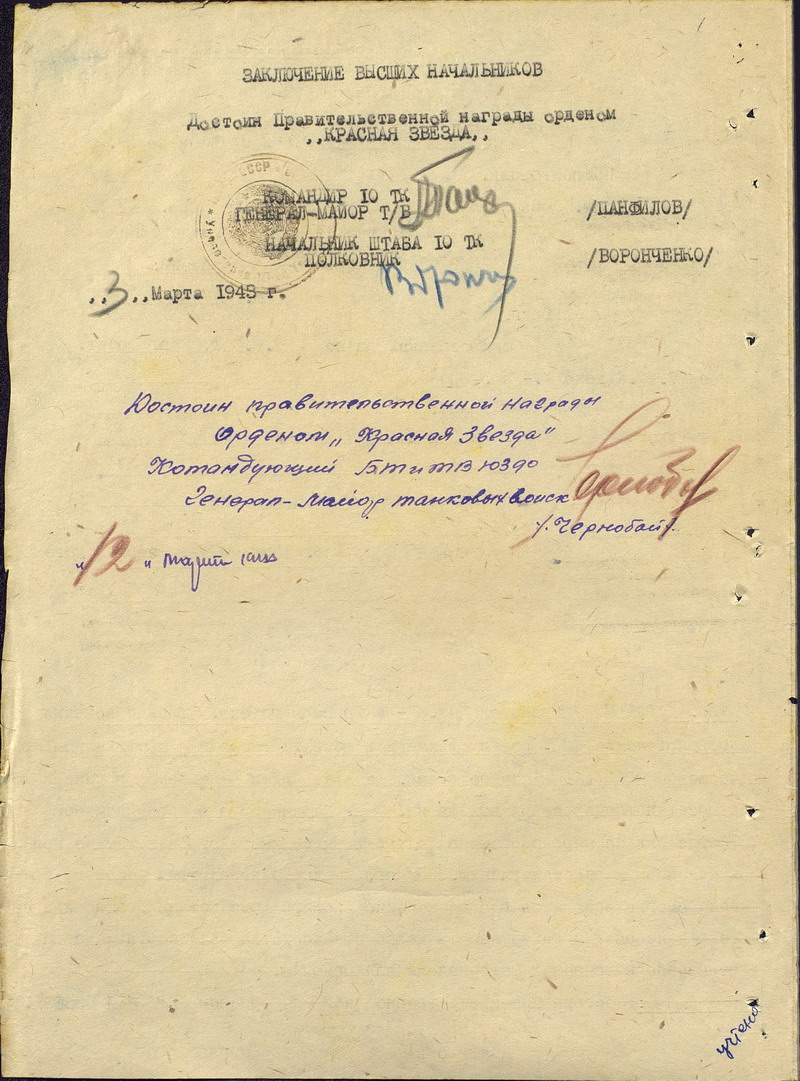 ЗАКЛЮЧЕНИЕ ВЫСШИХ НАЧАЛЬНИКОВ
Достоин Правительственной награды орденом
,,КРАСНАЯ ЗВЕЗДА,,
КОМАНДИР IO ТК
ГЕНЕРАЛ-МАЙОР Т/В /ПАНФИЛОВ/
НАЧАЛЬНИК ШТАБА IO ТК
ПОЛКОВНИК /ВОРОНЧЕНКО/
,,3,,Марта 1943 г.
Достоин правительственной награды
Орденом „Красная Звезда"
Командующий БТ и ТВ ЮЗФ
Генерал-майор танковых войск
/.Чернобай/.
„12" марта
учтено